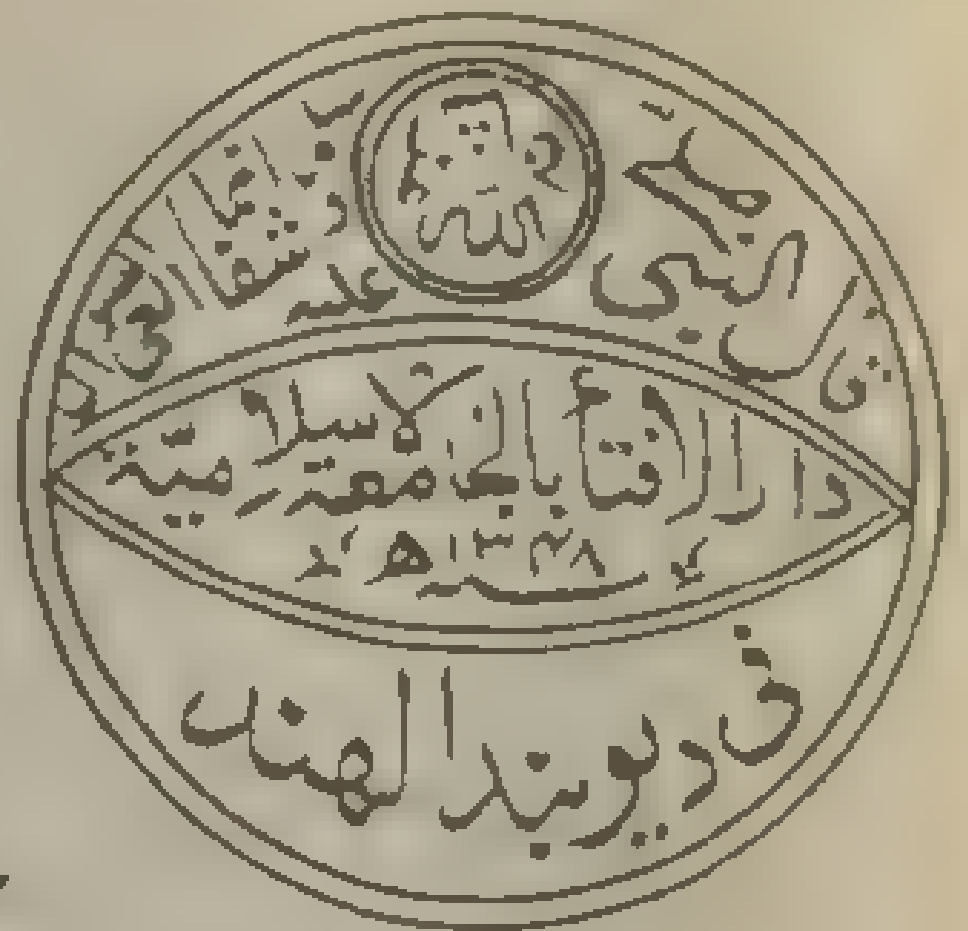 قال النبي صلى الله عليه
انما شفاء العي السؤال
دار الافتاء بالجامعة الاسلامية
١٣٤٨ هـ
في ديوبند الهند